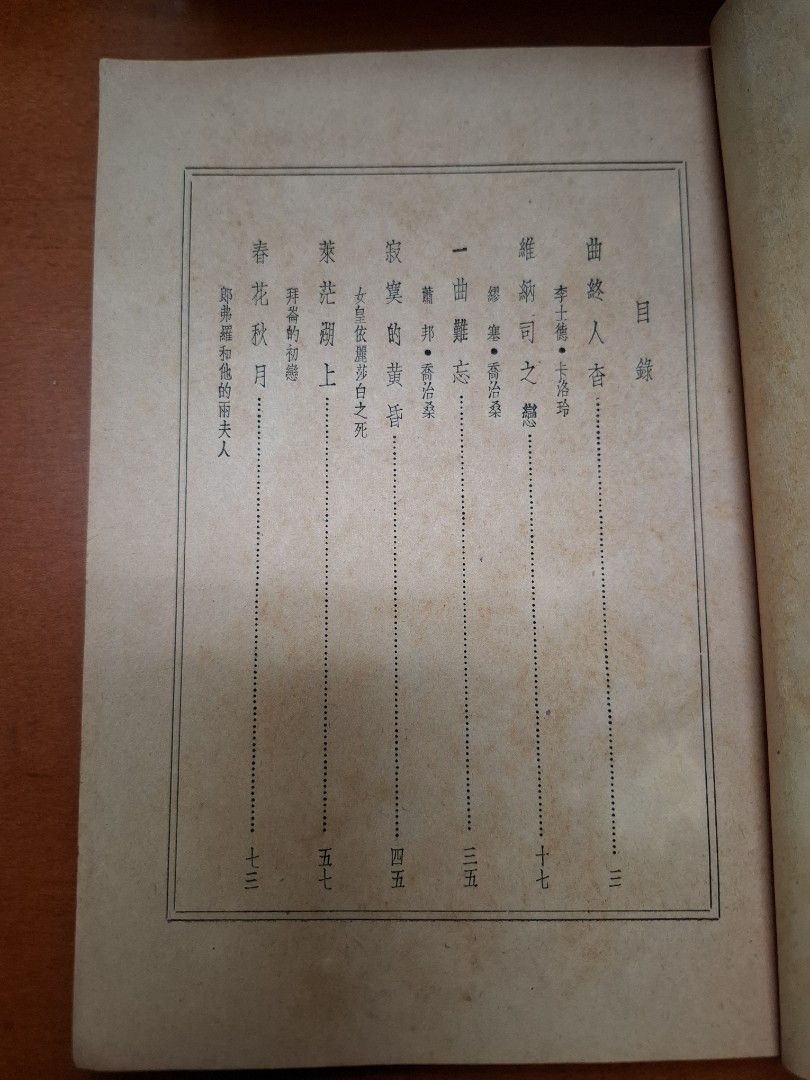 目錄
曲終人杳……三
李士德•卡洛玲
維納司之戀……十七
繆塞•喬治桑
一曲難忘……三五
蕭邦•喬治桑
寂寞的黄昏……四五
女皇依麗莎白之死
萊茫湖上……五七
拜崙的初戀
春花秋月……七三
郎弗羅和他的兩夫人